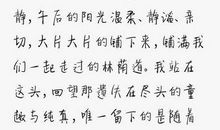 静,午后的阳光温柔、静谧、亲
切,大片大片的铺下来,铺满我
们一起走过的林荫道。我站在
这头,回望那遗失在尽头的童
趣与纯真,唯一留下的是随着